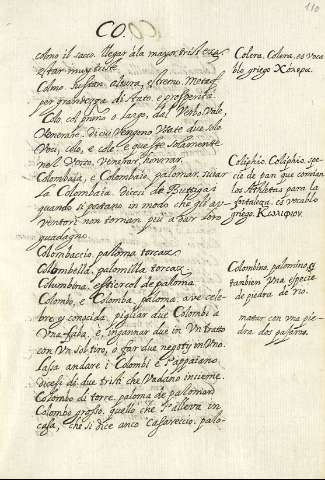 110
CO.
colmo il sacco. llegar à la mayor tristeza
estar muy triste.
Colmo. sustan. altura, estremo. Metaf.
per grandezza di stato, e prosperità
Colo, col primo o largo, dal Verbo, Vale,
Venerare. di cui Vengono Usate due sole
Voci, colo, e cole e queste solamente
nel Verso. Venerar, honrrar.
Colombaja, e Colombaia, palomar. suiar
la Colombaia, dicesi de Bottegai
quando si portano in modo che gli au-
uentori non tornan più a dar loro
guadagno.
Colombaccio. paloma torcaz
Colombella. palomilla torcaz
Columbina. estiercol de paloma
Colombo, e Colomba, paloma. ave cele-
bre y conocida. pigliar due Colombi a
Una faba, è, ingannar due in Un tratto
con Un sol tiro, o far due negotij in Uno.
lassa andare i Colombi e l'appaiano.
dicesi di due tristi che Vadano insieme.
Colombo di torre. paloma de palomar
Colombo grosso. quello che s'alleva in
casa, che si dice anco Casareccio. palo-
Colera, Colera, es voca
blo griego Χολερα.
Coliphio. Coliphio. spe-
cie de pan que comian
los Athletas para la
fortaleza. es vocablo
griego. Κωλιφιον.
Colombino, palomino, es
tanbien Una especie
de piedra de rio.
matar con una pie-
dra dos pajaros.